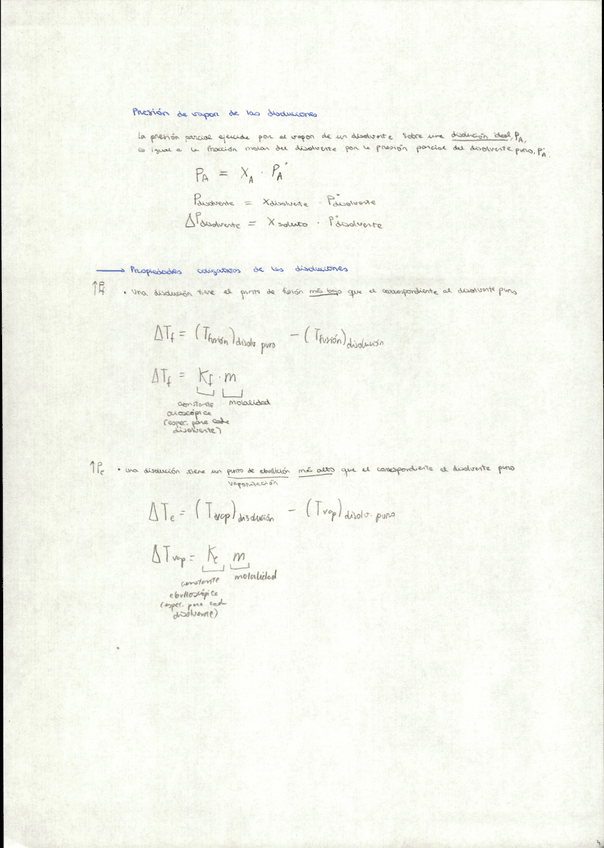 Presión de vapor de las disoluciones
La presión parcial ejercida por el vapor de un disolvente sobre una disolución ideal, P_A,
es igual a la fracción molar del disolvente por la presión parcial del disolvente puro, P°_A
P_A = X_A · P°_A
P_disolvente = X_disolvente · P°_disolvente
ΔP_disolvente = X_soluto · P°_disolvente
→ Propiedades coligativas de las disoluciones
• Una disolución tiene el punto de fusión más bajo que el correspondiente al disolvente puro
ΔT_f = (T_fusión)_disolv. puro − (T_fusión)_disolución
ΔT_f = K_f · m
constante molalidad
crioscópica
(esper. para cada
disolvente)
↑P_e • Una disolución tiene un punto de ebullición más alto que el correspondiente al disolvente puro
vaporización
ΔT_e = (T_vap)_disolución − (T_vap)_disolv. puro
ΔT_vap = K_e m
constante molalidad
ebulloscópica
(esper. para cada
disolvente)